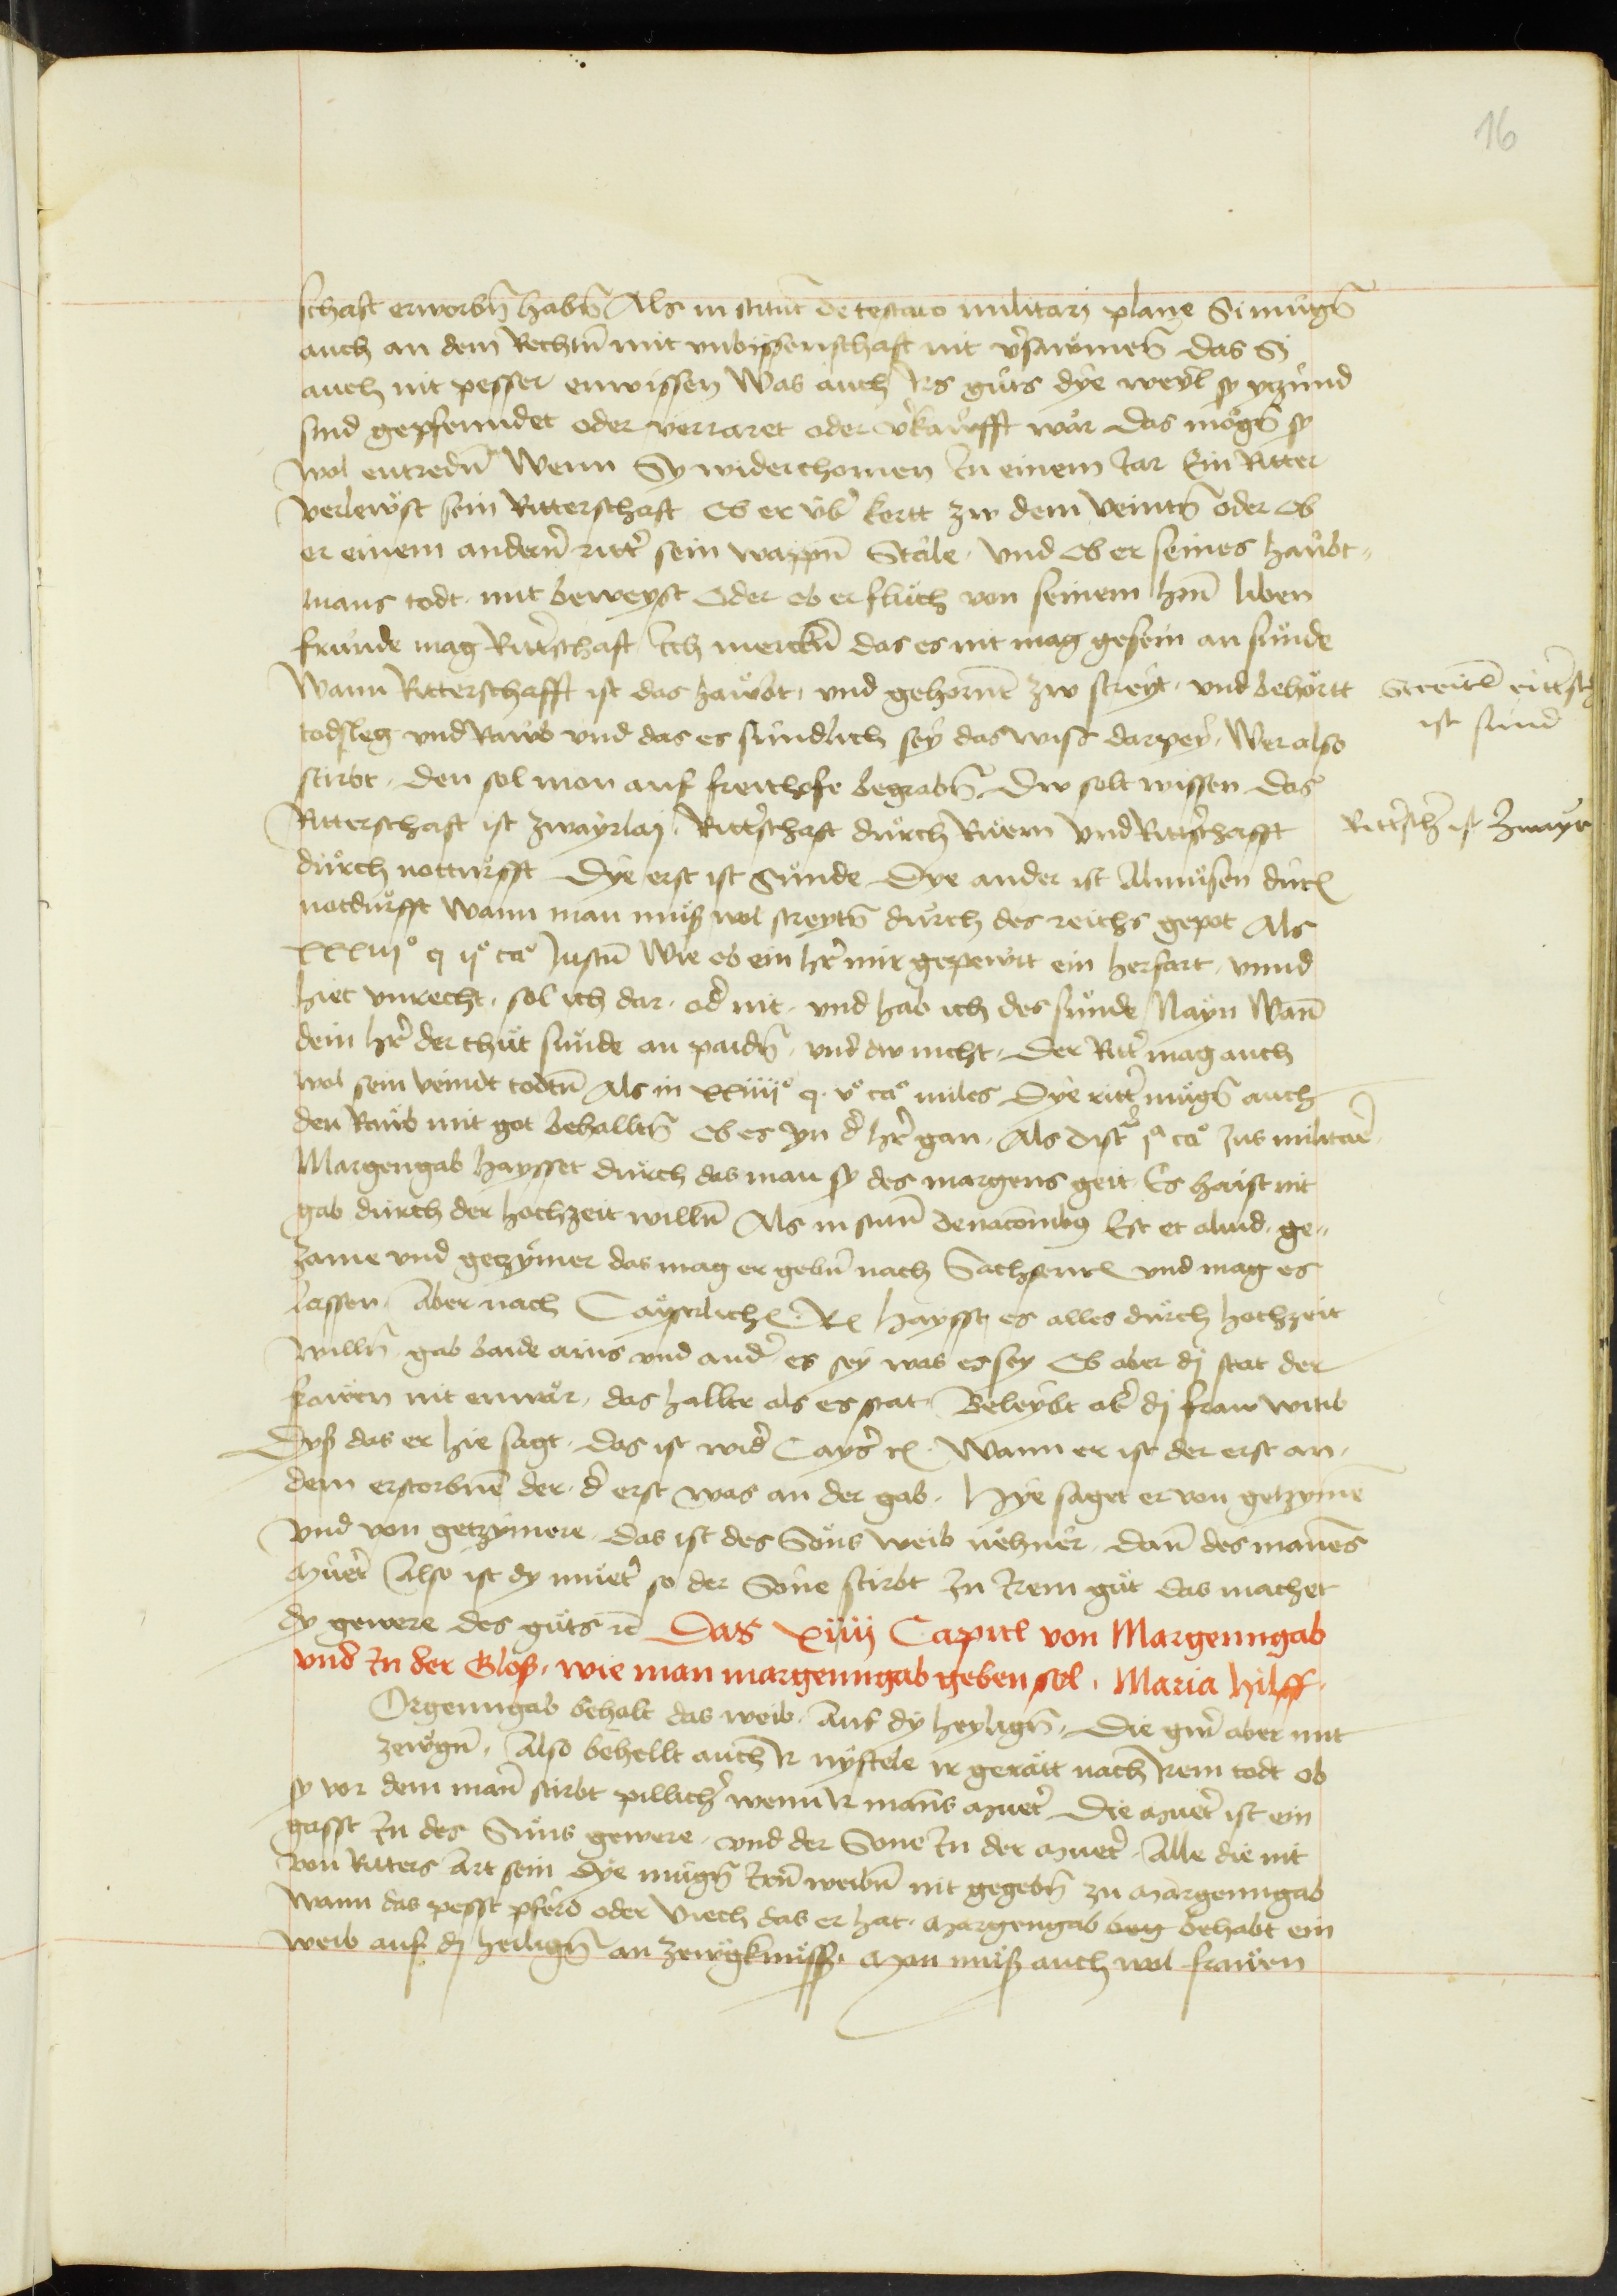 16
schaft erworbn̄ habn̄ Als in stitut̄ de testato militarj plane Si mugn̄
auch an dem Rechtn̄ mit vnbissenschaft nit v̓sawmen̄ das Si
auch nit pesser enwissen Was auch Irs guts dye weyl sy yczund
sind gepfenndet oder verraret oder v̓kawfft war das mögn̄ sy
wol entredn̄ Wenn Sy widerchomen In einem Iar Ein Ritter
verlewst sein Ritterschaft Ob er vb̓ kertt zw dem Veintn̄ oder Ob
er einem andern̄ ritt̓ sein wappn̄ Stale. Vnd Ob er seines hawbt„
mans todt. nit beweyst Oder ob er fluch von seinem hrn̄ liben
frunde mag Ritt̓schaft Ich merckn̄ das es nit mag gesein an sunde
Wann Ritterschafft ist das hawbt. vnd gehornt zw streyt. vnd behortt
Streitl ritt̓sch
ist sund
todsleg vnd Rawb vnd das es sundlich sey das wiss darpey. Wer also
stirbt. den sol mon auf freithofe begrabn̄ Dw solt wissen das
Ritterschaft ist zwayrlaj. Ritt̓schaft durch Ruem vnd Ritt̓schafft
Ritt̓sch ist Zwayr
durch notturfft Dye erst ist Sunde Dye ander ist Almusen durch
notdurfft Wann man muß wol streytn̄ durch des reichs gepot Als
xxxiijº q ijº caº Justū Wie ob ein hr̓ mir gepewt ein herfart. vnnd
hiet vnrecht. sol ich dar. od̓ nit. vnd hab ich des sunde Nayn Wan̄
dein hr̓ der thut sunde an paidn̄. vnd dw nicht. Der Ritt̓ mag auch
wol sein veindt todtn̄ Als in xxiiijº q. vº caº miles Dye ritt̓ mugn̄ auch
den Raub mit got behalltn̄ Ob es yn d̓ hr̓ gan. Als dist jª caº Jus militar̄
Margengab haysset durch das man sy des margens geit Es haist nit
gab durch der hochzeit willn̄ Als in stitū de nacōnibꝯ Est et aliud. ge„
zame vnd getzymer das mag er gebn̄ nach Sachsenr̄ vnd mag es
lassen. Aber nach Cayserlichē. Rē haysst es alles durch hochzeit
willn̄. gab baide ains vnd and̓ es sey was es sey Ob aber dj stat der
fawen nit enwar. das hallte als es stat. Beleybt ab̓ dj fraw witib
Dyß das er hie sagt. das ist wid̓ Cays̓ rē. Wann er ist der erst an.
dem erstorbnē der. d̓ erst was an der gab. Hye saget er von getzymē
Vnd von getzymere. das ist des Sons weib nehner. dan̄ des mannes
Muet̓ Also ist dy muet̓ so der Sone stirbt Jn Irem gut das machet
dy gewere des guts rc Das xiiij Capitl von Margenngab
vnd In der Gloß. wie man margenngab geben sol. Maria hilff.
Orgenngab behalt das weib. Auf dy heylign̄. Die gwr̓ aber mit
zewgn̄. Also behellt auch Ir nyftele ir geratt nach Irem todt ob
sy vor dem man̄ stirbt pillich̓ wenn Ir mans muet̓ Die muet̓ ist ein
gasst In des Suns gewere. vnd der Sone In der muet̓. Alle die nit
von Ritters Art sein Dye mugn̄ Irn̄ weibn̄ nit gegebn̄ zu Margenngab
Wann das pesst pferd oder Viech das er hat. Margengab beg behabt ein
weib auf dj heilign̄ an zewgknuss. Man muß auch wol frawen